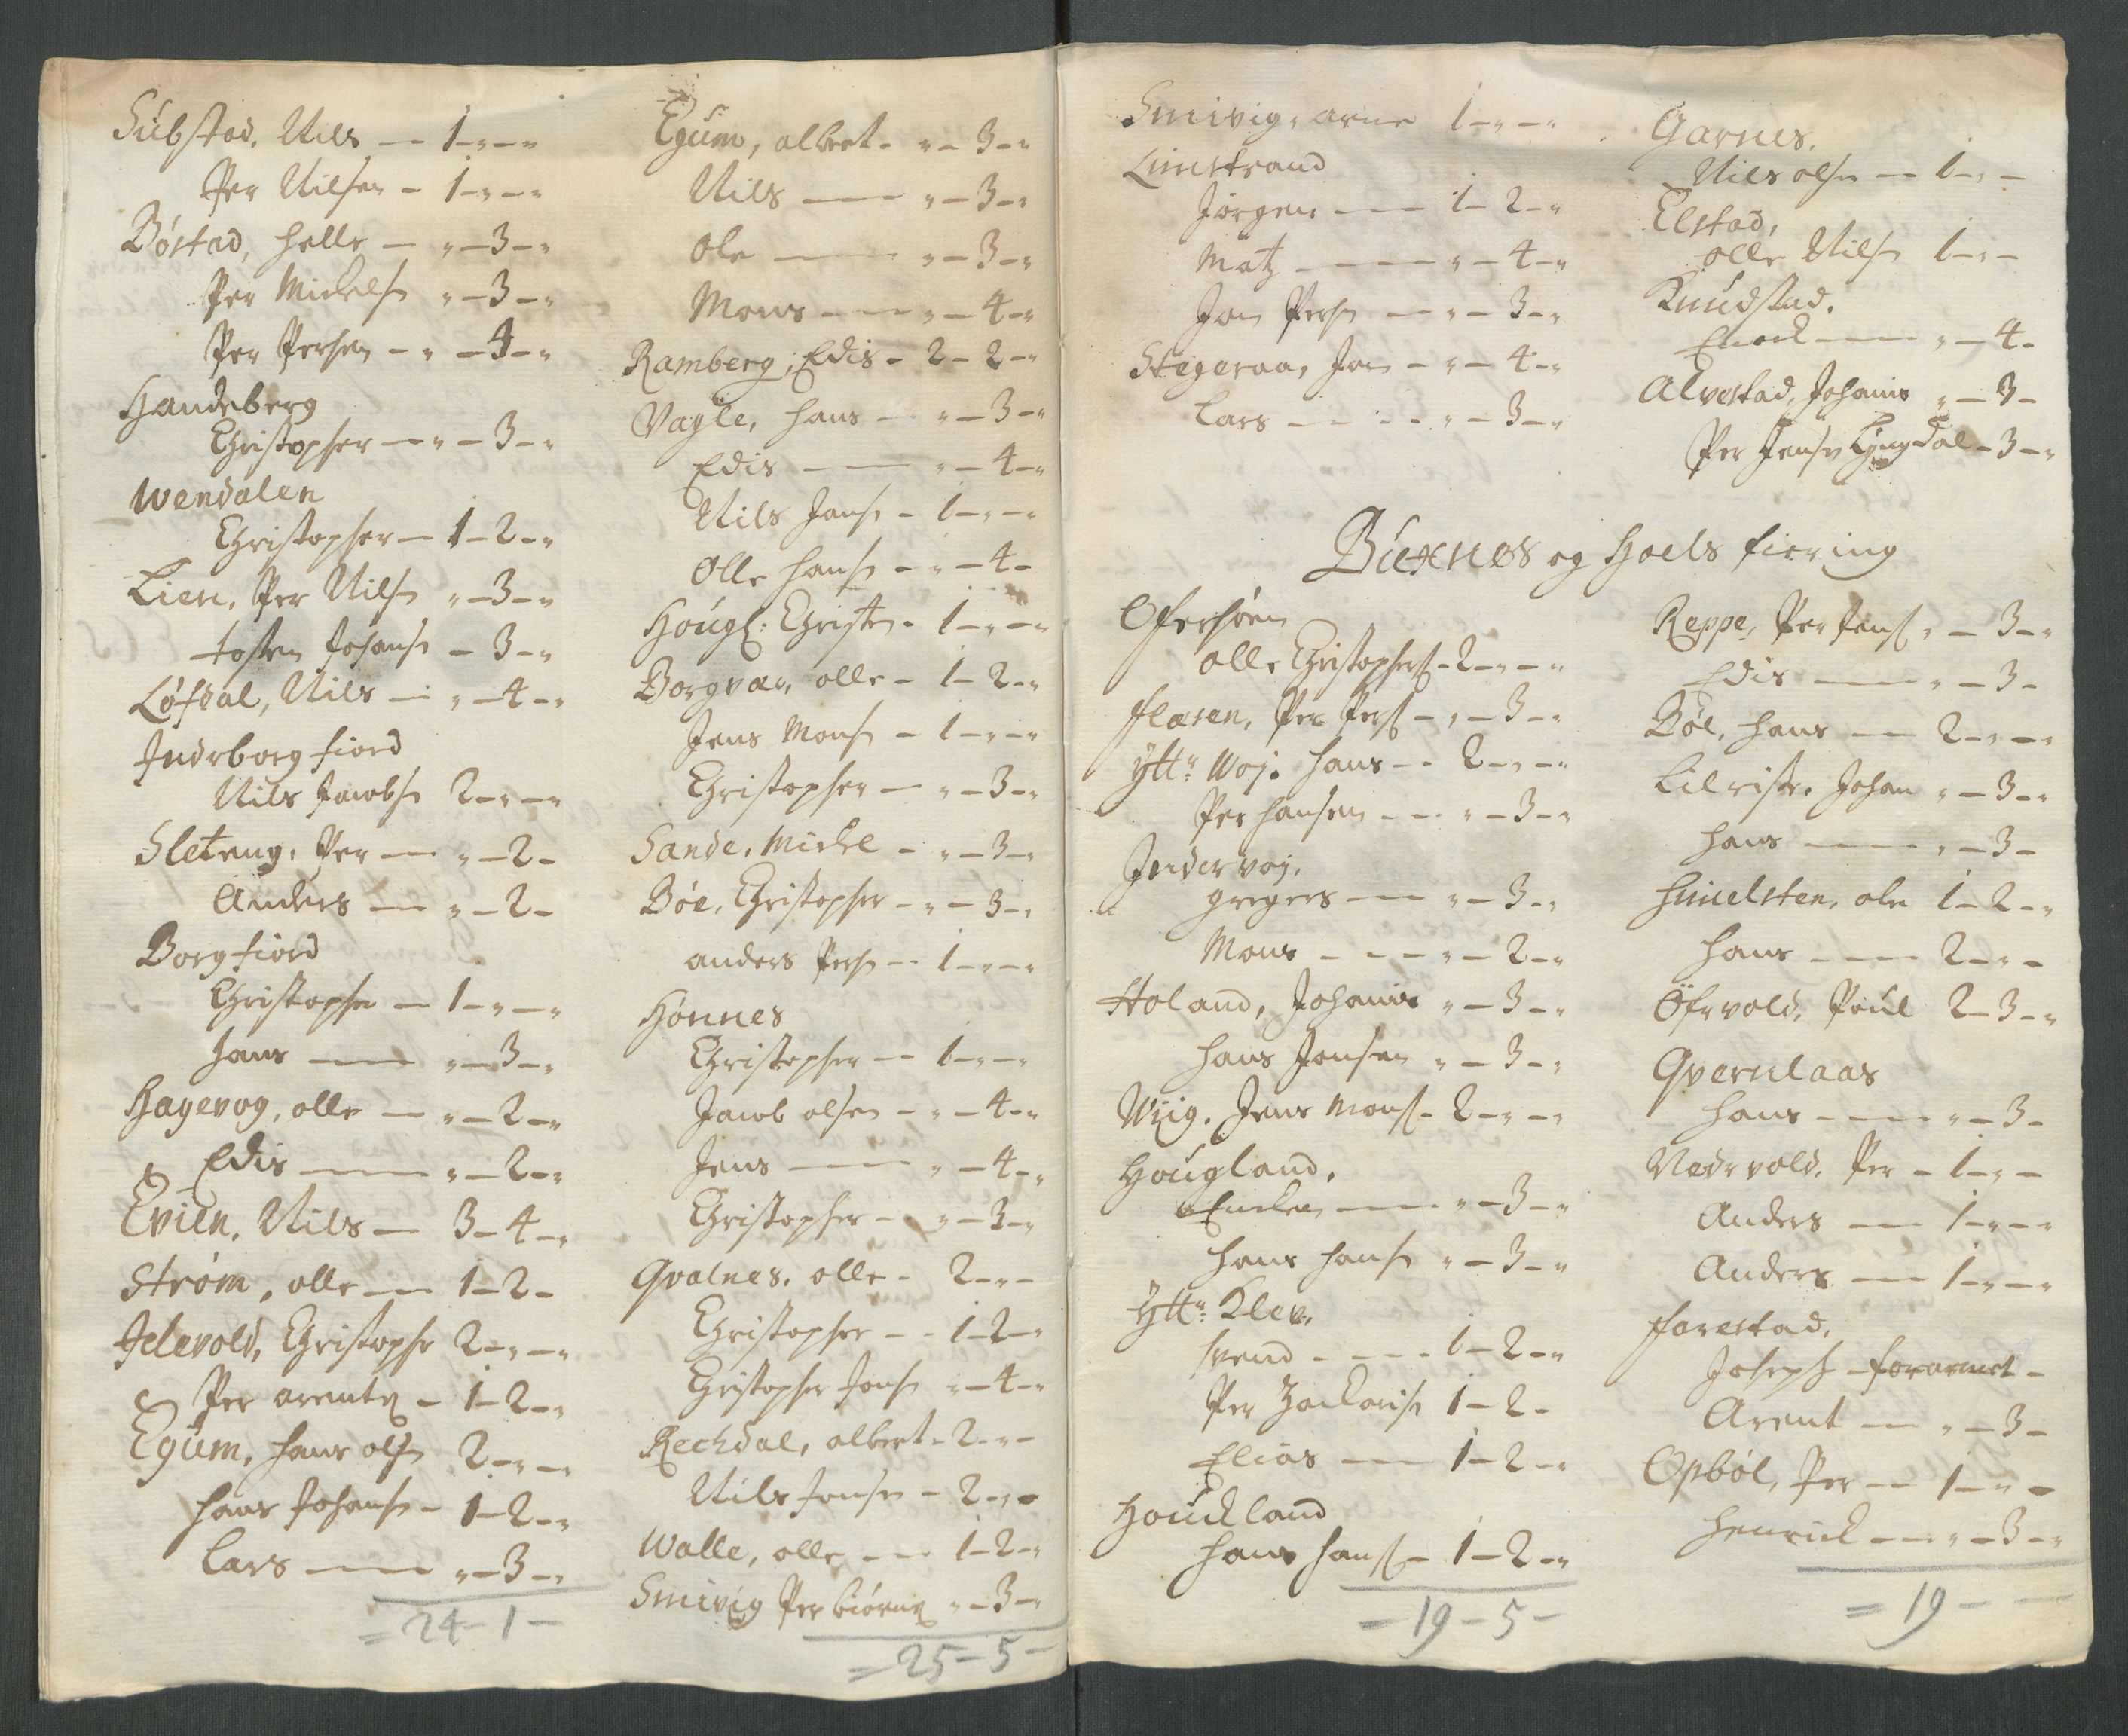 Súbstad, Nils — 1-„-„
Per Nilsen - 1-„-„
Bóstad, Helle - „-3-„
Per Michelsn „-3-„
Per Persen - „-4-„
Handeberg
Christopher — „-3-„
Wendalen
Christopher — 1-2-„
Lien, Per Nilsn „-3-„
tosten Johansn - 3-„
Lófdal, Nils — „-4-„
Indrborgfiord
Nils Jacobsn 2-„-„
Sleteng, Per — „-2-
Anders — „-2-
Borgfiord
Christopher — 1-„-„
Hans — „-3-„
Hagevog, olle — „-2-„
Edis — „-2-„
Evien, Nils — 3-4-„
Stróm, olle — 1-2-
Jelevold, Christophr 2-„-„
Per arentz - 1-2-„
Egúm, Hans olsn 2-„-„
Hans Johansn - 1-2-„
Lars — „-3-„
= 24-1-
Egúm, albret - „-3-„
Nils — „-3-„
Ole — „-3-„
Mons — „-4-„
Ramberg, Edis - 2-2-„
Vagle, Hans — „-3-„
Edis — „-4-„
Nils Jansn - 1-„-„
Olle Hansn - „-4-
Hóugl: Christen - 1-„-„
Borgvær, olle - 1-2-„
Jens Monsn - 1-„-„
Christopher — „-3-„
Sande, Michel - „-3-„
Bóe, Christopher - „-3-„
anders Persn — 1-„-„
Hónnes
Christopher — 1-„-„
Jacob olsen - „-4-„
Jens — „-4-„
Christopher - „-3-„
Qvalnes, olle - 2-„-
Christopher — 1-2-„
Christopher Jonsn „-4-„
Rechdal, albret - 2-„-
Nils Jonsen - 2-„-
Walle, olle — 1-2-„
Smivig Per biórnz „-3-„
= 25-5-
Smivig, arne 1-„-„
Limstrand
Jórgen — 1-2-„
Matz — „-4-„
Jon Persn — „-3-„
Stegeraa, Jon - „-4-„
Lars — „-3-„
Garnes,
Nils olsn — 1-„-
Elstad,
olle Nilsn 1-„-
Knúdstad,
Enoch — „-4-
Alvestad, Johanis „-3-
Per Jensn Lyngdal - 3-„
Búxnes og Hoels fiering
Ofersóen
olle Christophers - 2-„-„
flæsen, Per Pers - „-3-„
Ytter Wog: Hans — 2-„-„
Per Hansen — „-3-„
Indervog,
gregers — „-3-„
Mons — „-2-„
Holand, Johanis „-3-„
Hans Jonsen „-3-„
Wiig, Jens Mons - 2-„-„
Hóugland,
Encken — „-3-„
Hans Hansn „-3-„
Ytter Klev,
Svend — 1-2-„
Per Zachrisn 1-2-
Elias — 1-2-„
Houckland
Hans Hans - 1-2-„
= 19-5-
Reppe, Per Jens „-3-„
Edis — „-3-
Bóe, Hans — 2-„-„
Lilriste, Johan „-3-„
Hans — „-3-
Himelsten, ole 1-2-„
Hans — 2-„-
Ófrvold, Poúl 2-3-„
Qvernlaas
Hans — „-3-
Nedrvold, Per - 1-„-
Anders — 1-„-„
Anders — 1-„-„
farestad,
Joseph - forarmet -
Arent — „-3-
Opból, Per — 1-„-
Henrick — „-3-„
= 19 - -